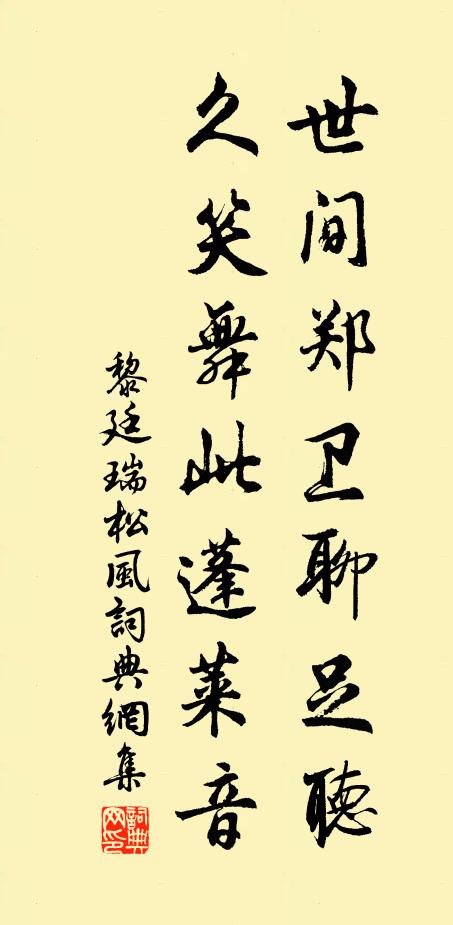 世间郑卫聊足聽
久笑舞此蓬莱音
黎廷瑞松風詞典網集
詞典网印